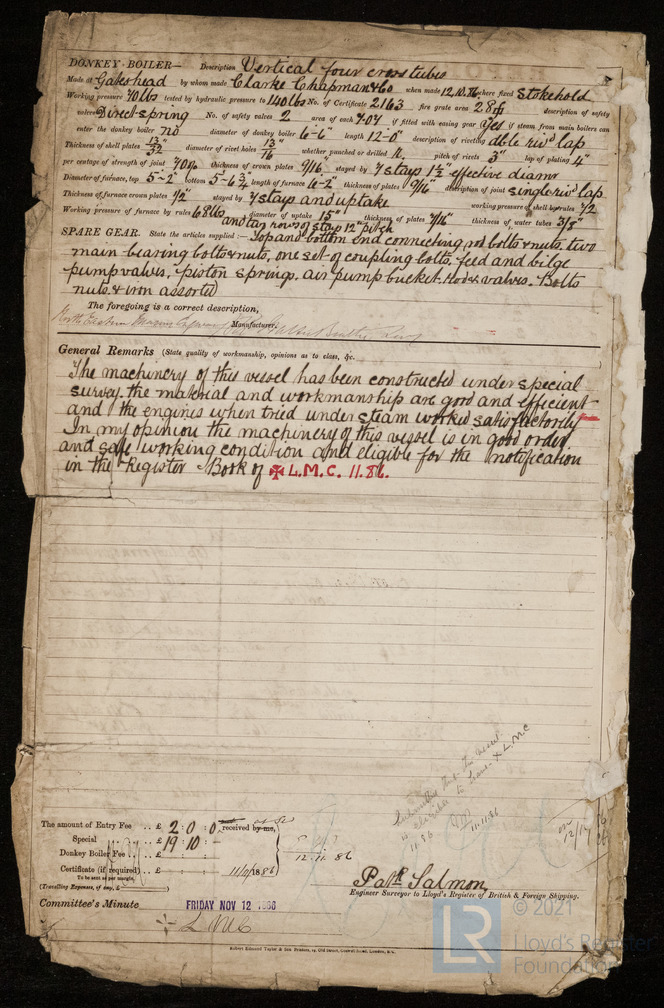 DONKEY BOILER— Description Vertical four cross tubes
Made at Gateshead by whom made Clarke Chapman & Co when made 12.10.86 where fixed Stokehold
Working pressure 70lbs tested by hydraulic pressure to 140lbs No. of Certificate 2163 fire grate area 28 description of safety
valves Direct spring No. of safety valves 2 area of each 7.07 if fitted with easing gear Yes if steam from main boilers can
enter the donkey boiler no diameter of donkey boiler 6-6" length 12-0" description of riveting dble riv'd lap
Thickness of shell plates 13/32 diameter of rivet holes 13/16 whether punched or drilled pitch of rivets 3" lap of plating 4"
per centage of strength of joint 70% thickness of crown plates 9/16" stayed by 7 stays 1½" effective diamr
Diameter of furnace, top 5-2" bottom 5-6¾" length of furnace 6-2" thickness of plates 9/16" description of joint single riv'd lap
Thickness of furnace crown plates ½" stayed by 7 stays and uptake working pressure of shell by rules 72
Working pressure of furnace by rules 68lbs diameter of uptake 15" thickness of plates 7/16" thickness of water tubes 3/8"
and row of stays 12" pitch
SPARE GEAR. State the articles supplied:— Top and bottom end connecting rod bolts & nuts, two
main bearing bolts & nuts, one set of coupling bolts, feed and bilge
pump valves, piston springs, air pump bucket, rod & valves. Bolts
nuts & iron assorted
The foregoing is a correct description,
North Eastern Marine Manufacturer.
General Remarks (State quality of workmanship, opinions as to class, &c.
The machinery of this vessel has been constructed under special
survey. the material and workmanship are good and efficient
and the engines when tried under steam worked satisfactorily
In my opinion the machinery of this vessel is in good order
and safe working condition and eligible for the notification
in the Register Book of ✠ L.M.C. 11.86.
Submitted that this vessel
is eligible to have + LMC
11.86
11.11.86
The amount of Entry Fee .. £ 2 : 0 : 0 received by me,
Special .. £ 19 : 10 : -
Donkey Boiler Fee .. £ : :
Certificate (if required) .. £ : : 11/11/1886
12.11.86
To be sent as per margin.
(Travelling Expenses, if any, £ )
Patk Salmon
Engineer Surveyor to Lloyd's Register of British & Foreign Shipping.
Committee's Minute FRIDAY NOV 12 1886
+ LMC
Robert Edmund Taylor & Son Printers, 19, Old Street, Goswell Road, London, E.C.
LR
© 2021
Lloyd's Register
Foundation